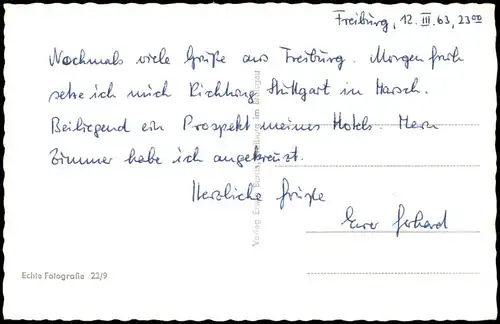 Freiburg, 12. III. 63, 23⁰⁰
Nochmals viele Grüße aus Freiburg. Morgen früh
setze ich mich Richtung Stuttgart in Marsch.
Beiliegend ein Prospekt meines Hotels. Mein
Zimmer habe ich angekreuzt.
Herzliche Grüße
Euer Gerhard
Echte Fotografie 22/9
Verlag Freiburg im Breisgau